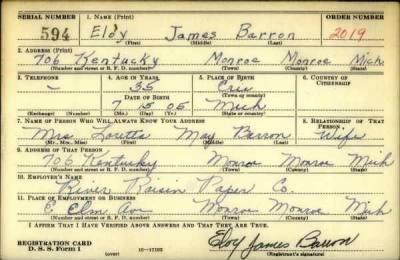 SERIAL NUMBER 1. NAME (Print) ORDER NUMBER
594 Eloy James Barron 2019
(First) (Middle) (Last)
2. ADDRESS (Print)
706 Kentucky Monroe Monroe Mich
(Number and street or R. F. D. number) (Town) (County) (State)
3. TELEPHONE 4. AGE IN YEARS 5. PLACE OF BIRTH 6. COUNTRY OF CITIZENSHIP
- 35 Erie
DATE OF BIRTH (Town or county)
7 15 05 Mich
(Exchange) (Number) (Mo.) (Day) (Yr.) (State or country)
7. NAME OF PERSON WHO WILL ALWAYS KNOW YOUR ADDRESS 8. RELATIONSHIP OF THAT PERSON
Mrs Loretta May Barron Wife
(Mr., Mrs., Miss) (First) (Middle) (Last)
9. ADDRESS OF THAT PERSON
706 Kentucky Monroe Monroe Mich
(Number and street or R. F. D. number) (Town) (County) (State)
10. EMPLOYER'S NAME
River Raisin Paper Co.
11. PLACE OF EMPLOYMENT OR BUSINESS
E. Elm Ave Monroe Monroe Mich
(Number and street or R. F. D. number) (Town) (County) (State)
I AFFIRM THAT I HAVE VERIFIED ABOVE ANSWERS AND THAT THEY ARE TRUE.
REGISTRATION CARD
D. S. S. Form 1 (over) Eloy James Barron
(Registrant's signature)